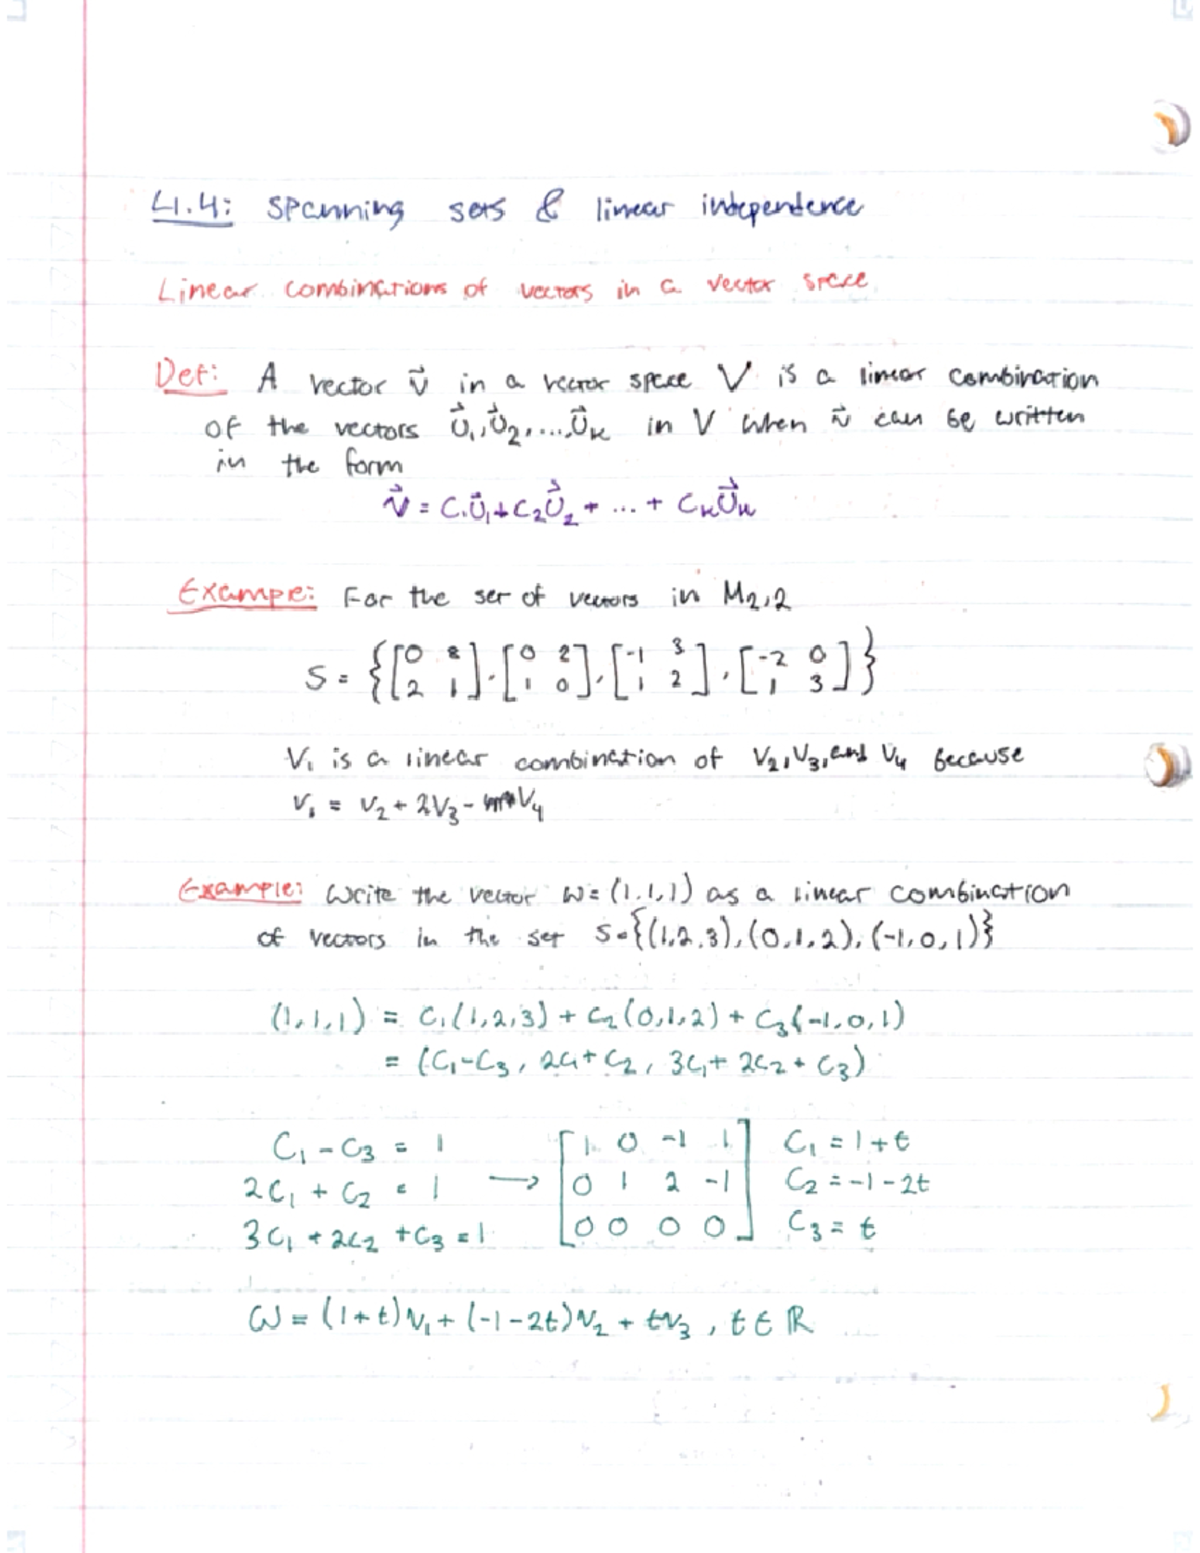 4.4: Spanning sets & linear independence
Linear combinations of vectors in a vector space
Def: A vector v⃗ in a vector space V is a linear combination
of the vectors u⃗₁, u⃗₂, ..., u⃗ₖ in V when v⃗ can be written
in the form
v⃗ = c₁u⃗₁ + c₂u⃗₂ + ... + cₖu⃗ₖ
Example: For the set of vectors in M₂,₂
S = {[0 8; 2 1], [0 2; 1 0], [-1 3; 1 2], [-2 0; 1 3]}
V₁ is a linear combination of V₂, V₃, and V₄ because
V₁ = V₂ + 2V₃ - V₄
Example: Write the vector w = (1,1,1) as a linear combination
of vectors in the set S = {(1,2,3), (0,1,2), (-1,0,1)}
(1,1,1) = C₁(1,2,3) + C₂(0,1,2) + C₃(-1,0,1)
= (C₁-C₃, 2C₁+C₂, 3C₁+2C₂+C₃)
C₁ - C₃ = 1 [1 0 -1 1] C₁ = 1+t
2C₁ + C₂ = 1 → [0 1 2 -1] C₂ = -1-2t
3C₁ + 2C₂ + C₃ = 1 [0 0 0 0] C₃ = t
W = (1+t)V₁ + (-1-2t)V₂ + tV₃, t∈ℝ